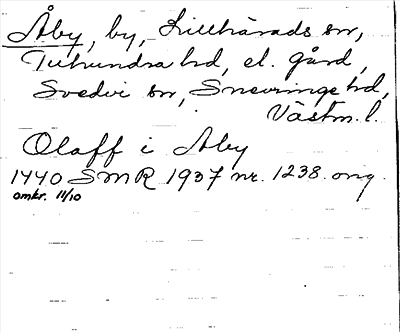 Åby, by, Lillhärads sn,
Tuhundra hd, el. gård,
Svedvi sn, Snevringe hd,
Västm. l.
Olaff i Aby
1440 SMR 1937 nr. 1238. ong.
omkr. 11/10